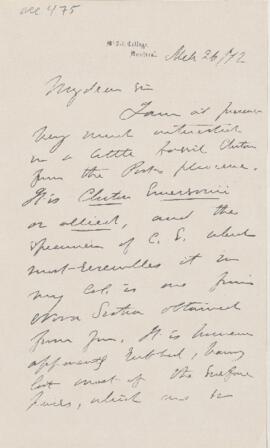 acc 475
McGill College,
Montreal.
Mch 26/72
My dear Sir
I am at present
very much interested
in a little fossil Chiton
from the Post-pliocene.
It is Chiton Emersonii
or allied, and the
specimen of C. E. which
most resembles it in
my Col. is one from
Nova Scotia obtained
from you. It is however
apparently rubbed, having
lost most of the surface
pores, which are so